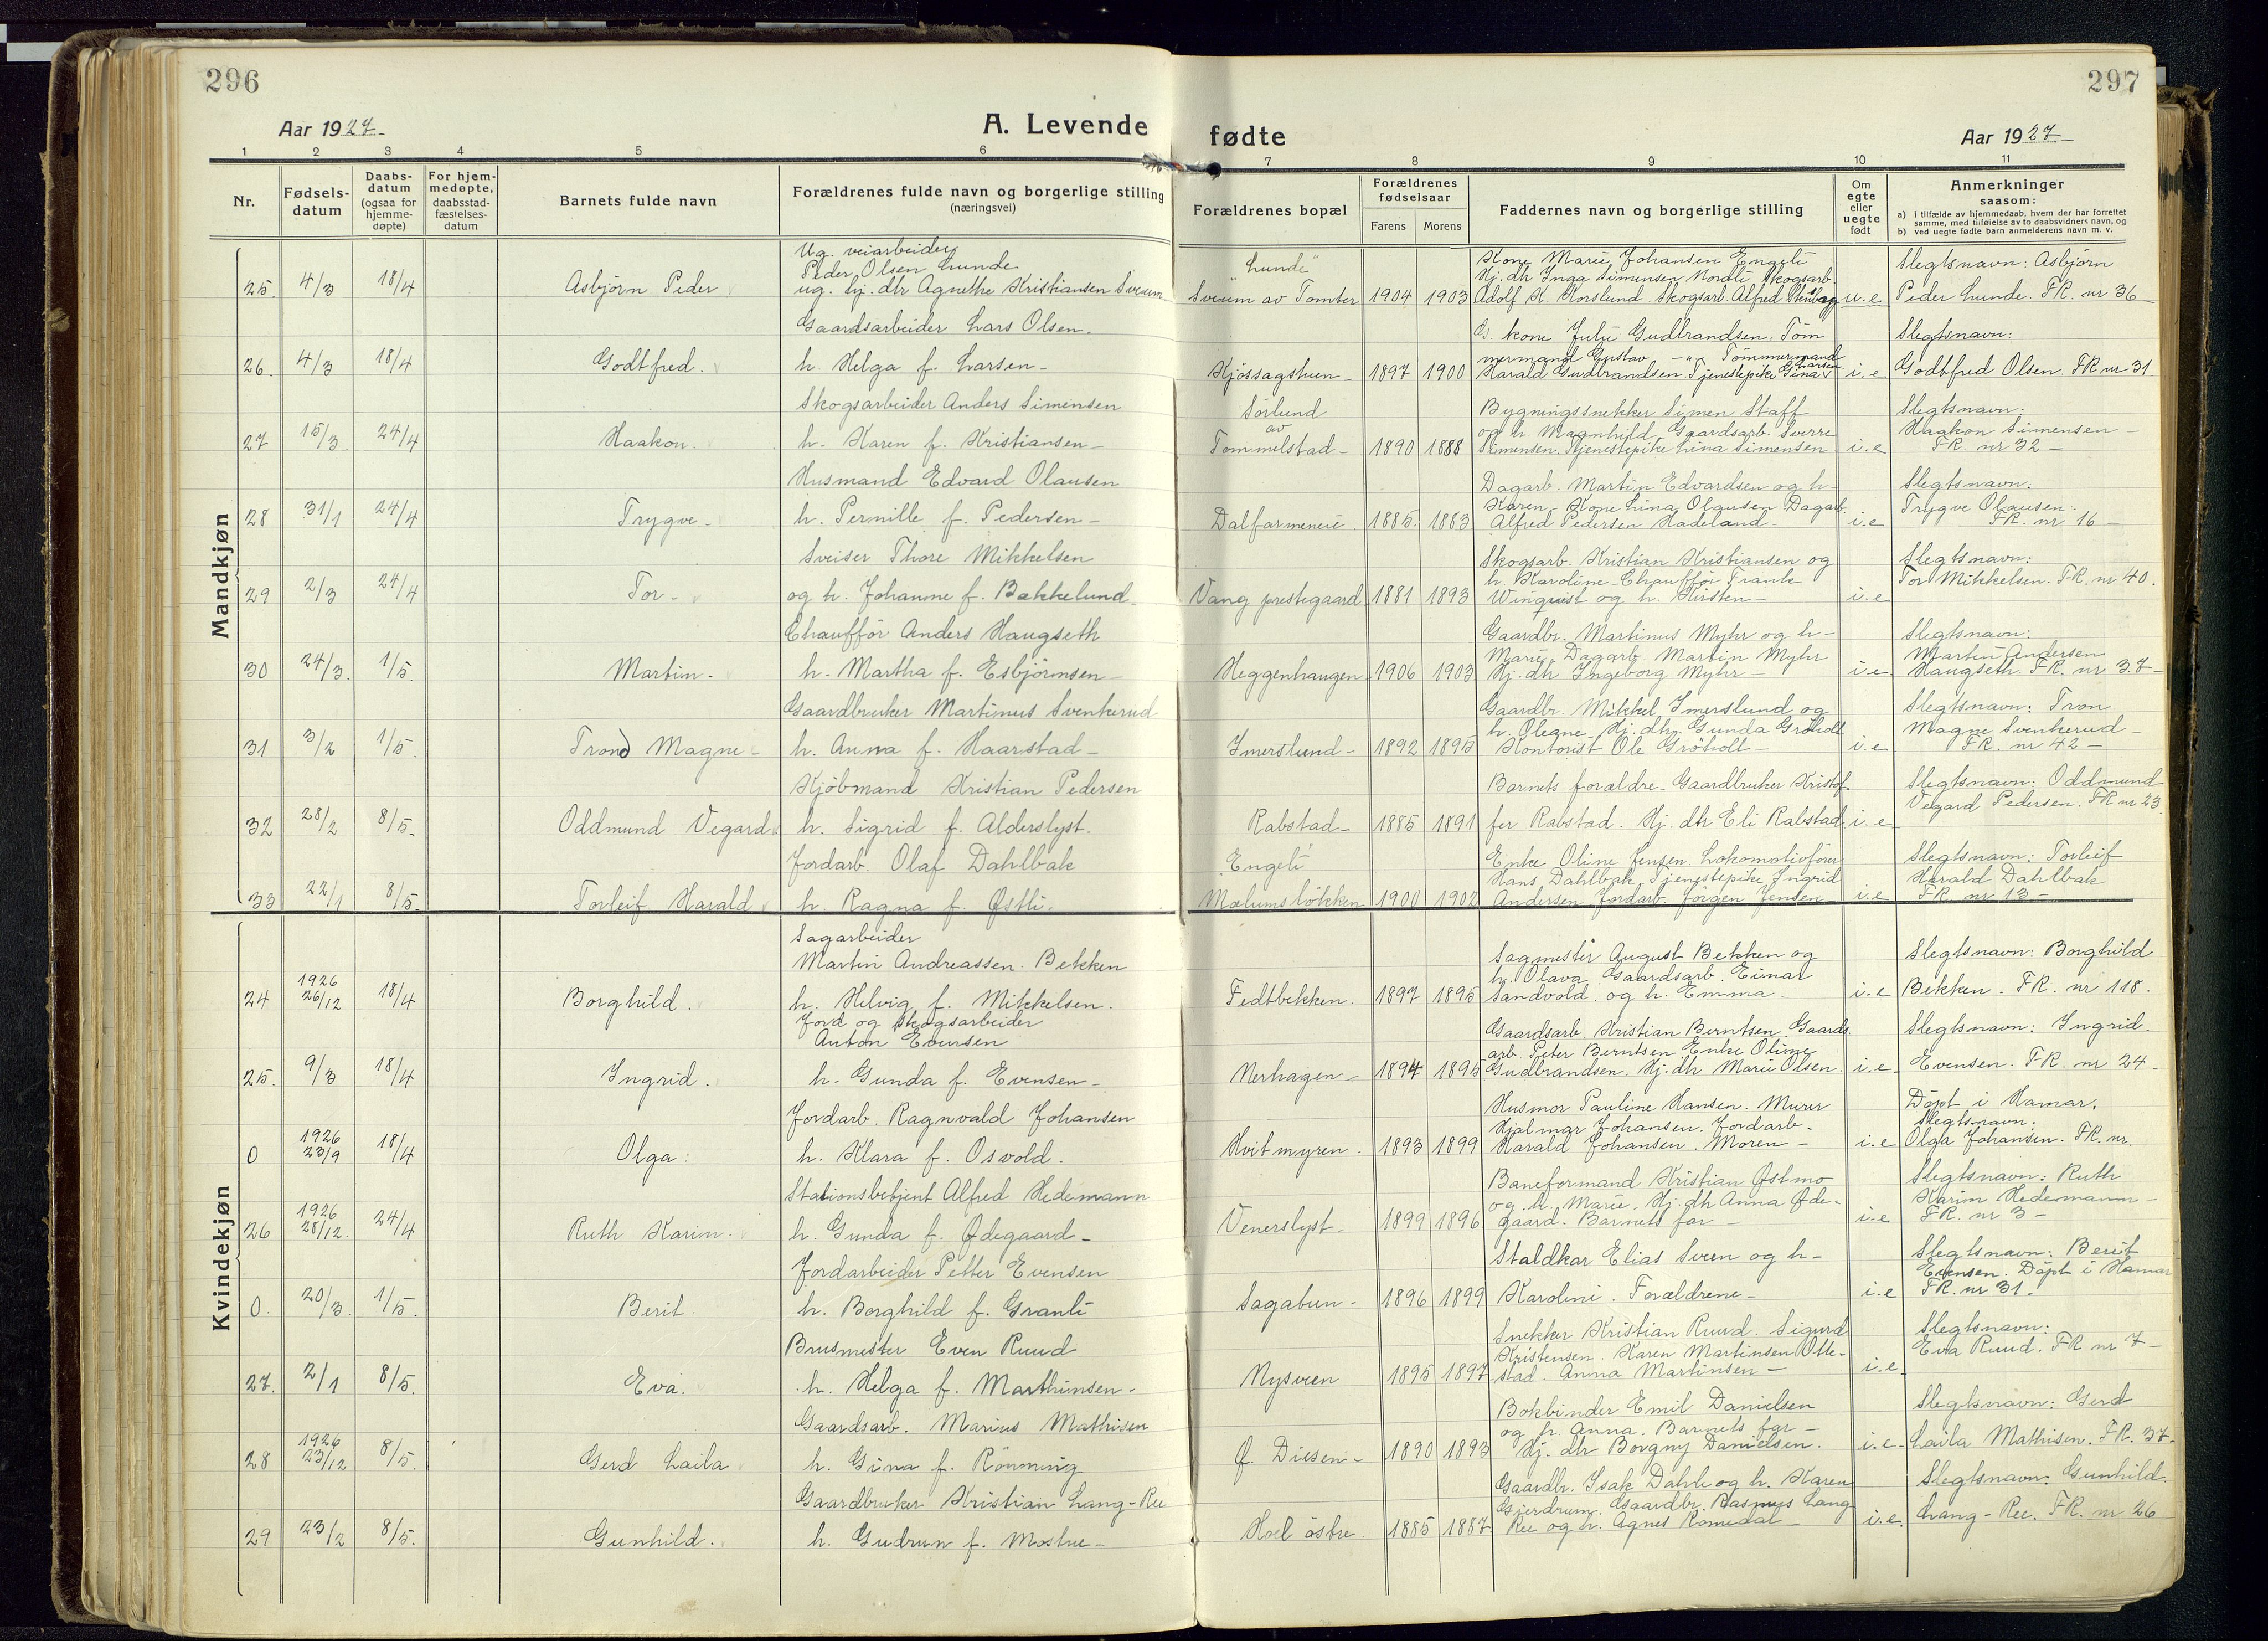 296
297
Aar 1927-
A. Levende fødte
Aar 1927-
1 2 3 4 5 6 7 8 9 10 11
Nr.
Fødsels-
datum
Daabs-
datum
(ogsaa for
hjemme-
døpte)
For hjem-
medøpte,
daabsstad-
fæstelses-
datum
Barnets fulde navn
Forældrenes fulde navn og borgerlige stilling
(næringsvei)
Forældrenes bopæl
Forældrenes
fødselsaar
Farens Morens
Faddernes navn og borgerlige stilling
Om
egte
eller
uegte
født
Anmerkninger
saasom:
a) i tilfælde av hjemmedaab, hvem der har forrettet
samme, med tilføielse av to daabsvidners navn, og
b) ved uegte fødte barn anmelderens navn m. v.
Mandkjøn
25. 4/3 18/4 Asbjörn Peder
Ug. veiarbeider
Peder Olsen Lunde
ug. hj. dtr Agnethe Kristiansen Sveum
"Lunde"
Sveum av Tomter 1904 1903
Kone Marie Johansen Engeli
Hj. dtr Inga Simensen Nordli Skogsarb.
Adolf K. Korslund. Skogsarb. Alfred Stenberg
u.e
Slegtsnavn: Asbjörn
Peder Lunde. FR. nr 36-
26. 4/3 18/4 Godtfred.
Gaardsarbeider Lars Olsen.
h. Helga f. Larsen-
Kjössagstuen- 1897 1900
G. kone Julie Gudbrandsen. Töm
mermand Gustav -"- Tömmermand
Harald Gudbrandsen. Tjenestepike Gina Larsen
i.e.
Slegtsnavn:
Godtfred Olsen. FR nr 31.
27 15/3 24/4 Haakon.
Skogsarbeider Anders Simensen
h. Karen f. Kristiansen-
Sörlund
av
Tommelstad- 1890 1888
Bygningssnekker Simen Staff
og h. Magnhild. Gaardsarb. Sverre
Simensen. Tjenestepike Lina Simensen
i.e
Slegtsnavn:
Haakon Simensen-
FR. nr 32-
28 31/1 24/4 Trygve-
Husmand Edvard Olausen
h. Pernille f. Pedersen-
Dalfarmeneie. 1885. 1883
Dagarb. Martin Edvardsen og h-
Karen. Kone Lina Olausen Dagarb.
Alfred Pedersen Hadeland-
i.e
Slegtsnavn:
Trygve Olausen.
FR. nr 16-
29 2/3 24/4 Tor-
Sveiser Thore Mikkelsen
og h. Johanne f. Bakkelund-
Vang prestegaard 1881 1893
Skogsarb. Kristian Kristiansen og
h. Karoline- Chaufför Frank
Winquist og h. Kirsten-
i.e
Slegtsnavn:
Tor Mikkelsen. FR. nr 40.
30 24/3. 1/5. Martin-
Chaufför Anders Haugseth
h. Martha f. Esbjörnsen-
Heggenhaugen 1906 1903
Gaardbr. Martinus Myhr og h-
Marie. Dagarb. Martin Myhr
Hj. dtr Ingeborg Myhr-
i-e
Slegtsnavn:
Martin Andersen
Haugseth. FR. nr 37-
31 3/2 1/5. Trond Magne-
Gaardbruker Martinus Svenkerud
h. Anna f. Haarstad-
Imerslund- 1892 1895
Gaardbr. Mikkel Imerslund og
h. Olegne- Hj. dtr. Gunda Gröholt
Kontorist Ole Gröholt-
i.e
Slegtsnavn: Tron
Magne Svenkerud-
FR. nr 42-
32 28/2 8/5. Oddmund Vegard
Kjöbmand Kristian Pedersen
h. Sigrid f. Alderslyst.
Rabstad- 1885 1891
Barnets forældre- Gaardbruker Kristof-
fer Rabstad. Hj. dtr Eli Rabstad
i.e
Slegtsnavn: Oddmund
Vegard Pedersen. FR nr 23
33 22/1 8/5. Torleif Harald
Jordarb. Olaf Dahlbak
h. Ragna f. Østli.
Engeli
Mælumslökken 1900 1902
Enke Oline Jensen. Lokomotivförer
Hans Dahlbak. Tjenestepike Ingrid
Andersen Jordarb. Jörgen Jensen
i.e
Slegtsnavn: Torleif
Harald Dahlbak
FR. nr 13-
Kvindekjøn
24 1926 26/12 18/4 Borghild.
Sagarbeider
Martin Andreassen. Bekken
h. Helvig f. Mikkelsen.
Fedtbekken. 1897 1895
Sagmester August Bekken og
h. Olava. Gaardsarb. Einar
Sandvold. og h. Emma-
i.e
Slegtsnavn: Borghild
Bekken. FR. nr 118.
25. 9/3 18/4 Ingrid.
Jord og skogsarbeider
Anton Evensen
h. Gunda f. Evensen-
Nerhagen- 1894 1895
Gaardsarb. Kristian Berntsen. Gaards-
arb. Peter Berntsen Enke Oline
Gudbrandsen. Hj. dtr Marie Olsen.
i.e
Slegtsnavn: Ingrid.
Evensen. FR. nr 24-
0 1926 23/9 18/4 Olga:
Jordarb. Ragnvald Johansen
h. Klara f. Osvold.
Hvitmyren. 1893 1899
Husmor Pauline Hansen. Murer
Hjalmar Johansen. Jordarb-
Harald Johansen. Moren-
i.e
Döpt i Hamar.
Slegtsnavn:
Olga Johansen. FR. nr.
26 1926 28/12. 24/4 Ruth Karin.
Stationsbetjent Alfred Hedemann
h. Gunda f. Ødegaard-
Venerslyst- 1899 1896
Baneformand Kristian Østmo
og h. Marie. Hj. dtr Anna Øde-
gaard. Barnets far-
i.e
Slegtsnavn: Ruth
Karin Hedemann-
FR. nr 3-
0. 20/3. 1/5. Berit.
Jordarbeider Petter Evensen
h. Borghild f. Granli
Sagabun- 1896 1899
Staldkar Elias Sveen og h-
Karoline. Forældrene-
i.e
Slegtsnavn: Berit
Evensen. Döpt i Hamar
FR. nr 31-
27. 2/1 8/5. Eva.
Brusmester Even Ruud
h. Helga f. Marthinsen-
Nysveen 1895 1897
Snekker Kristian Ruud. Sigurd
Kristensen. Karen Martinsen Otte-
stad. Anna Martinsen-
i.e
Slegtsnavn:
Eva Ruud. FR nr 7-
28 1926 23/12 8/5. Gerd Laila
Gaardsarb. Marius Mathisen
h. Gina f. Rönning
f. Diesen- 1890 1893
Bokbinder Emil Danielsen
og h. Anna. Barnets far-
Hj. dtr Borgny Danielsen.
i.e-
Slegtsnavn: Gerd
Laila Mathisen. FR. 37-
29 23/2 8/5. Gunhild.
Gaardbruker Kristian Lang-Ree
h. Gudrun f. Mostue-
Hoel östre. 1885 1887
Gaardbr. Isak Dahle og h. Karen
Gjerdrum. Gaardbr. Rasmus Lang-
Ree og h. Agnes Romedal-
i.e.
Slegtsnavn: Gunhild.
Lang-Ree. FR. nr 26